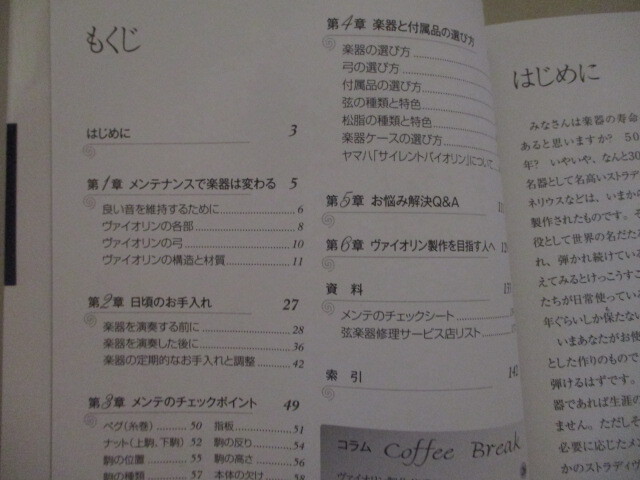 もくじ
はじめに 3
第1章 メンテナンスで楽器は変わる 5
良い音を維持するために 6
ヴァイオリンの各部 8
ヴァイオリンの弓 10
ヴァイオリンの構造と材質 11
第2章 日頃のお手入れ 27
楽器を演奏する前に 28
楽器を演奏した後に 36
楽器の定期的なお手入れと調整 42
第3章 メンテのチェックポイント 49
ペグ(糸巻) 50 指板 51
ナット(上駒、下駒) 52 駒の反り 54
駒の位置 55 駒の高さ 56
駒の種類 57 本体の欠け 58
第4章 楽器と付属品の選び方
楽器の選び方
弓の選び方
付属品の選び方
弦の種類と特色
松脂の種類と特色
楽器ケースの選び方
ヤマハ「サイレントバイオリン」について
第5章 お悩み解決Q&A
第6章 ヴァイオリン製作を目指す人へ
資料
メンテのチェックシート
弦楽器修理サービス店リスト
索引 142
コラム Coffee Break
はじめに
みなさんは楽器の寿命
あると思いますか? 50
年? いやいや、なんと30
名器として名高いストラデ
ネリウスなどは、いまか
製作されたものです。そ
役として世界の名だた
れ、弾かれ続けている
えてみるとけっこうすご
たちが日常使ってい
年ぐらいしか保たない
いまあなたがお使
とした作りのもので
弾けるはずです。
器であれば生涯の
ません。ただしそ
必要に応じたメン
かのストラディヴ